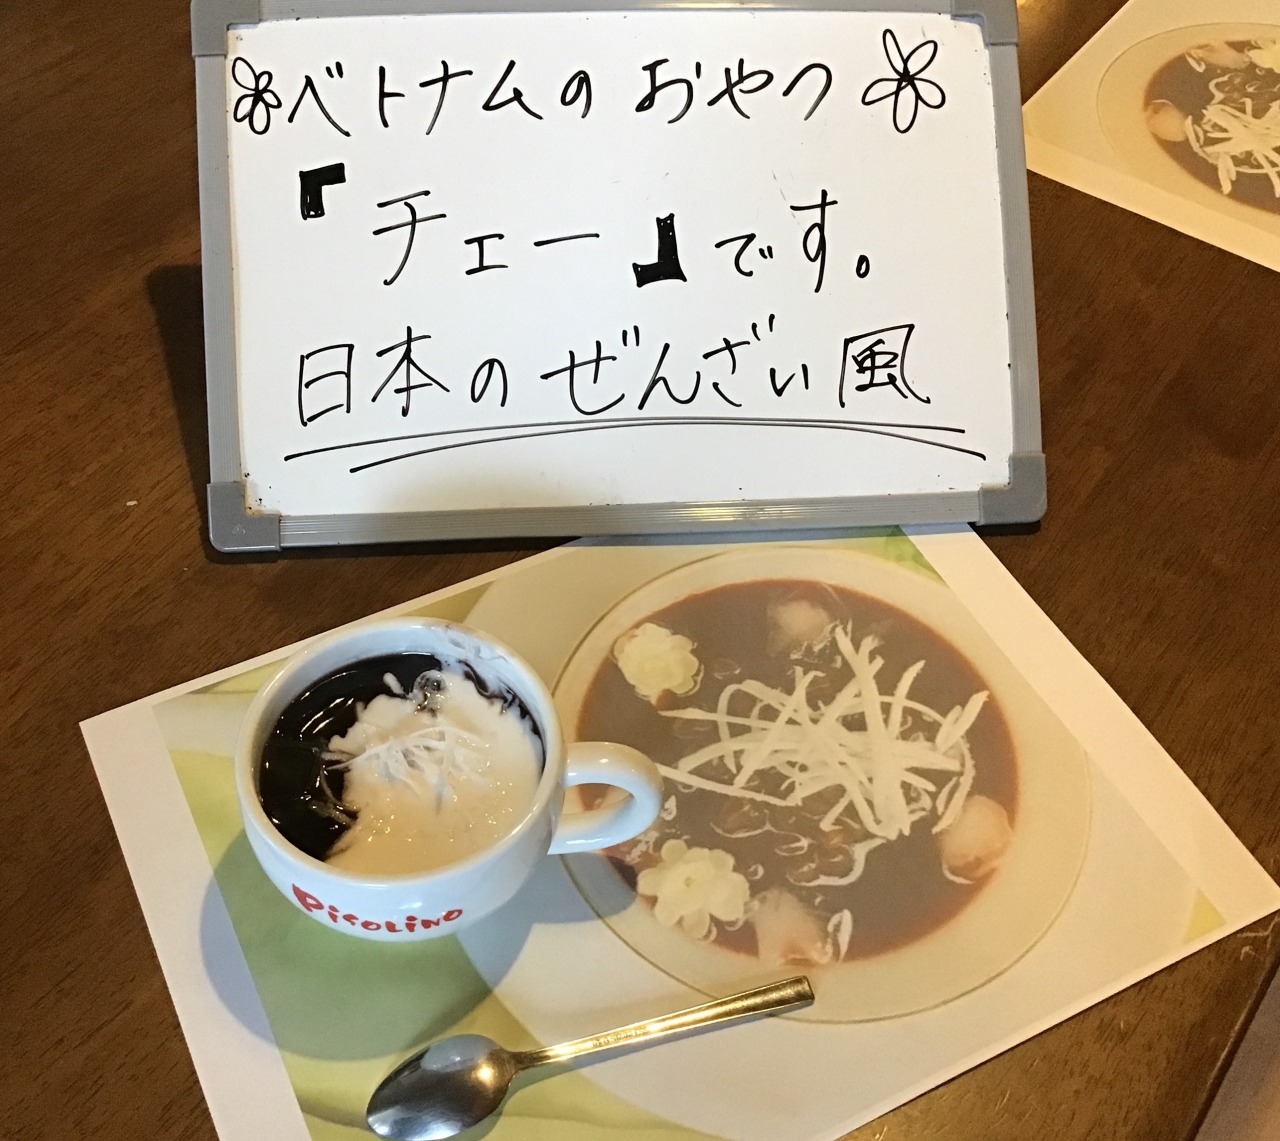 ベトナムのおやつ
『チェー』です。
日本のぜんざい風
PiSOLiNO